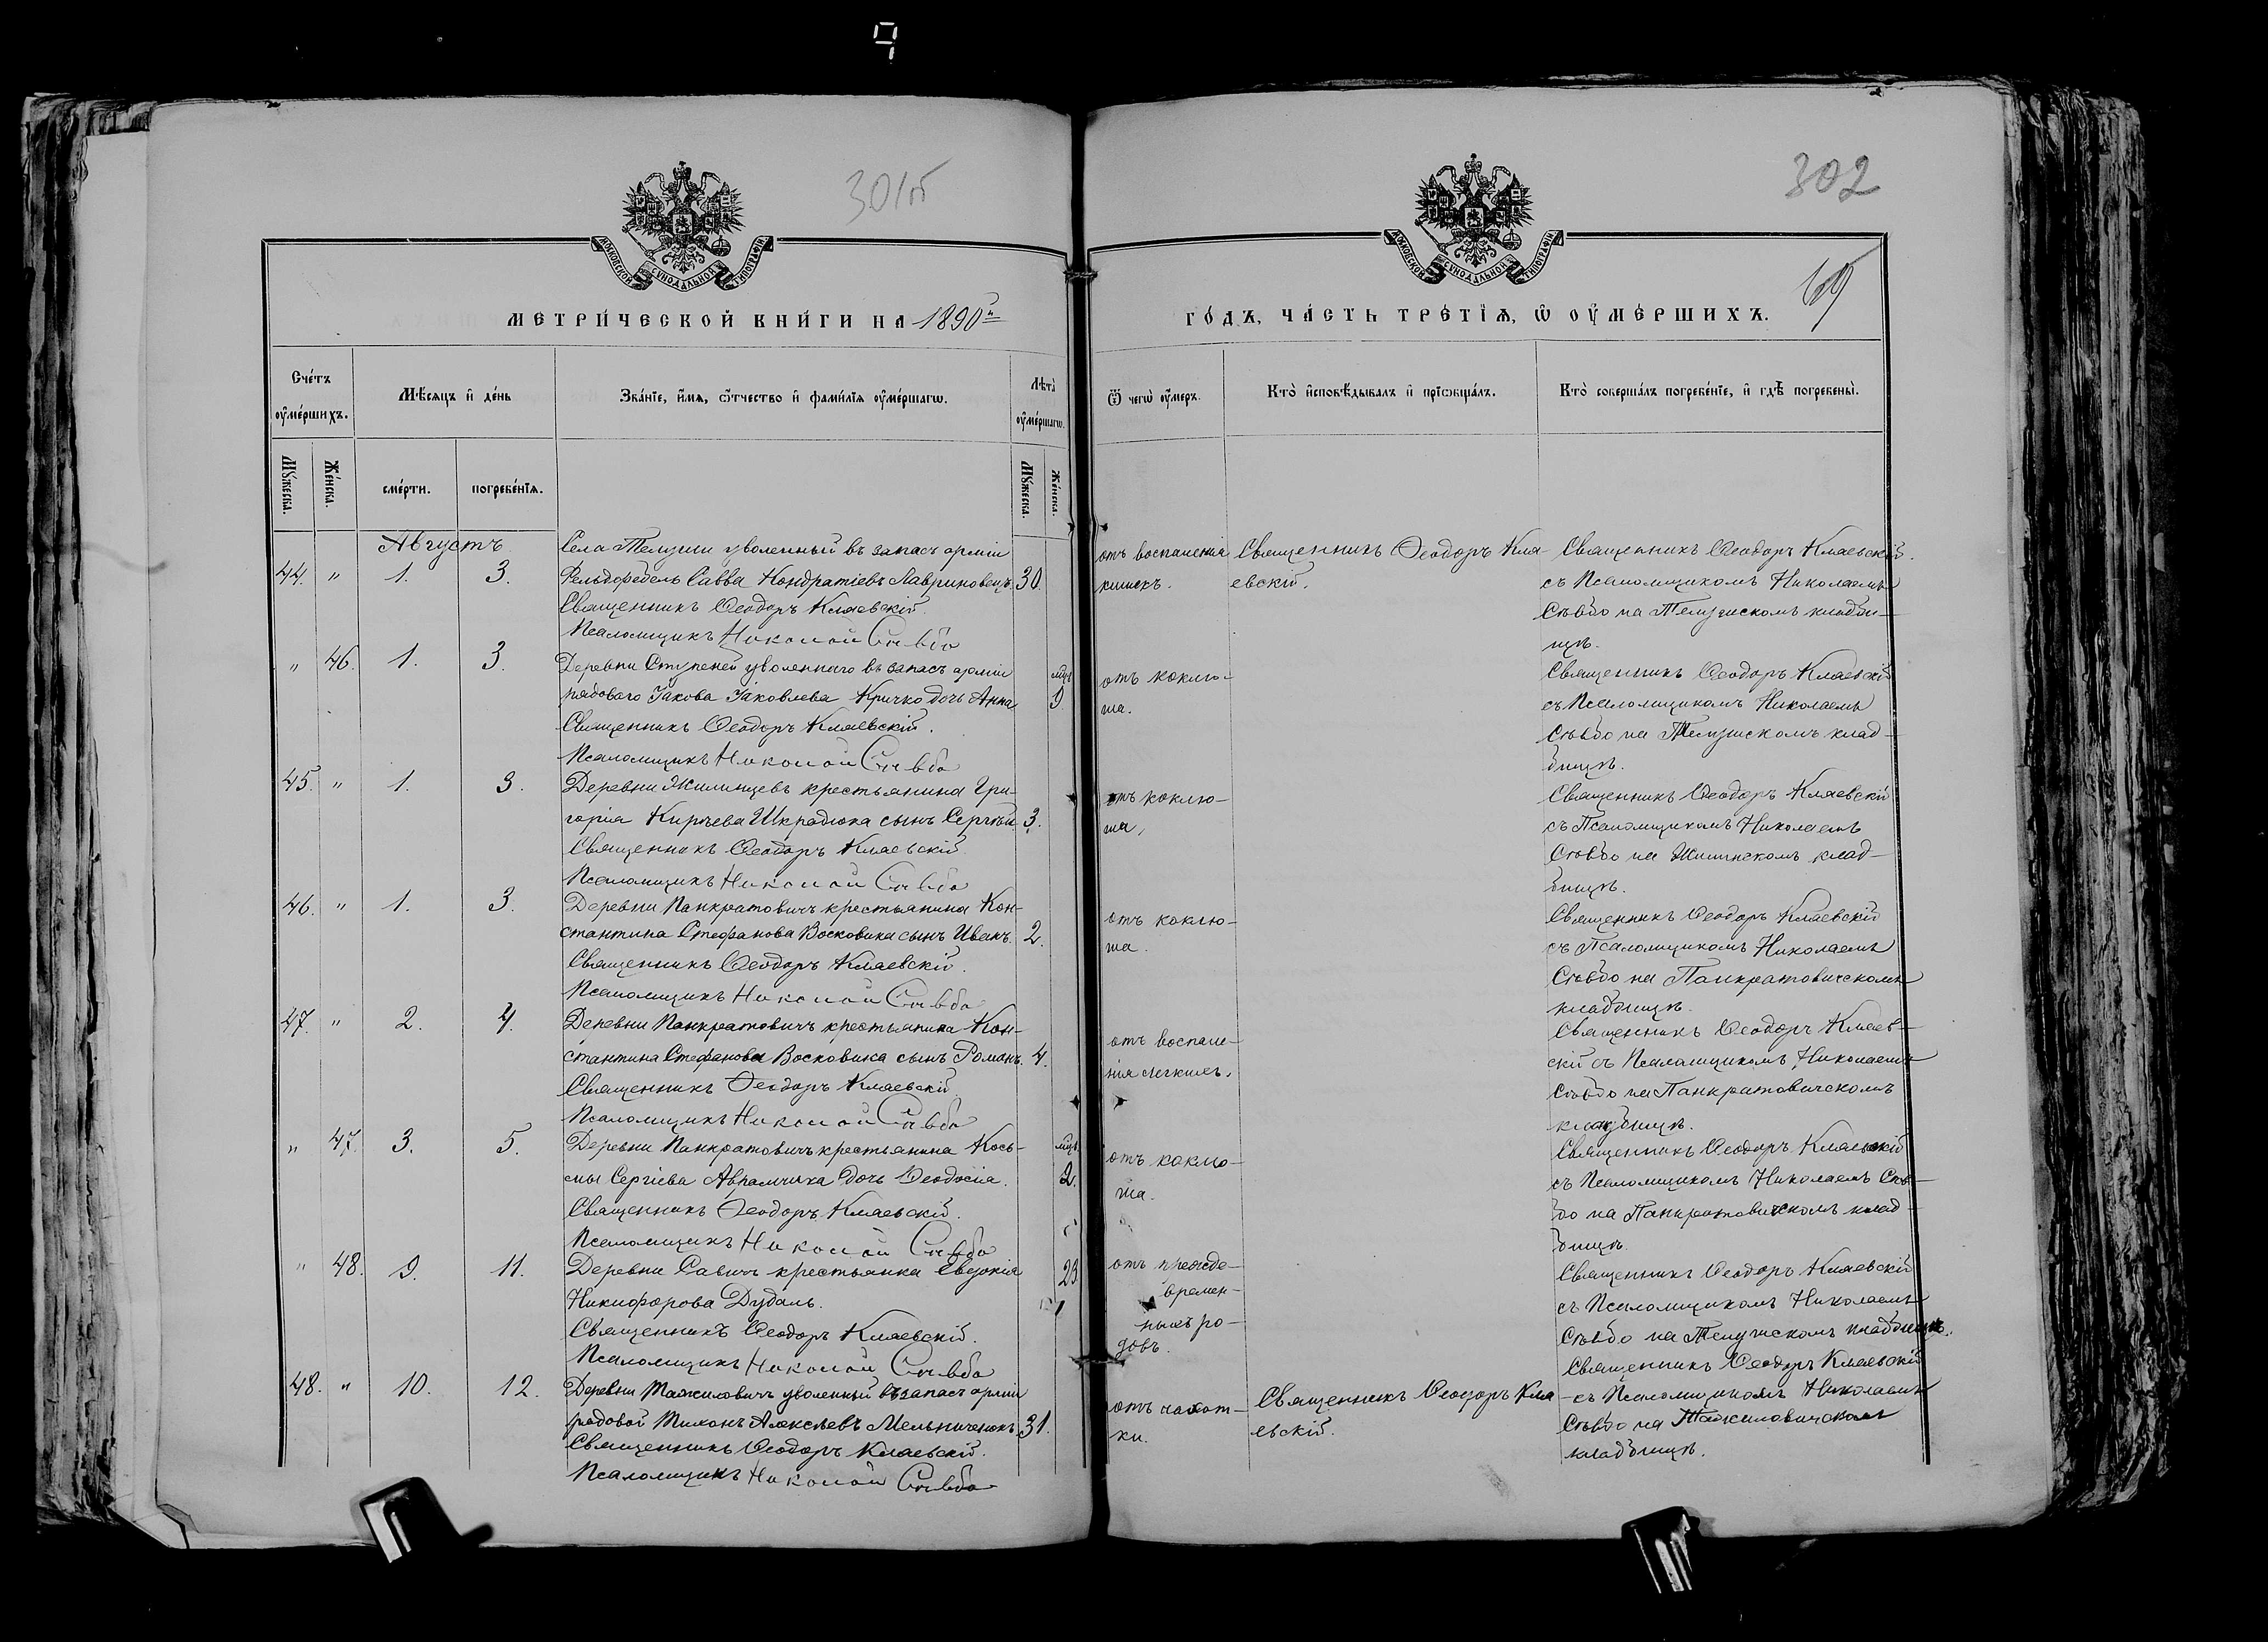 301об
302
69
МОСКОВСКОЙ СУНОДАЛЬНОЙ ТИПОГРАФІИ
МОСКОВСКОЙ СУНОДАЛЬНОЙ ТИПОГРАФІИ
МЕТРИ́ЧЕСКОЙ КНИ́ГИ НА 1890й
ГО́ДЪ, ЧА́СТЬ ТРЕ́ТІѦ, Ѡ ОУМЕ́РШИХЪ.
Сче́тъ оуме́ршихъ.
Мꙋ́жеска.
Же́нска.
Мѣ́сяцъ и де́нь
сме́рти.
погребе́нїѧ.
Зва́нїе, и́мѧ, ѻ҆́тчество и фами́лїѧ оуме́ршагѡ.
Лѣ́та оуме́ршагѡ.
Мꙋ́жеска.
Же́нска.
Ѿ чегѡ̀ оу́меръ.
Кто̀ и҆сповѣ́дывалъ и҆ прїѡбща́лъ.
Кто̀ соверша́лъ погребе́нїе, и҆ гдѣ̀ погребены̀.
Августъ
44. " 1. 3.
Села Телуши уволенный въ запасъ арміи
Фельдфебель Савва Кондратіевъ Лавриновецъ. 30.
Священникъ Ѳеодоръ Клаевскій.
Псаломщикъ Николай Сѣвбо
отъ воспаленія
кишекъ.
Священникъ Ѳеодоръ Кла-
евскій.
Священникъ Ѳеодоръ Клаевскій.
съ Псаломщикомъ Николаемъ
Сѣвбо на Телушскомъ кладби-
щѣ.
" 46. 1. 3.
Деревни Ступеней уволеннаго въ запасъ арміи
рядоваго Іакова Іаковлева Кричко дочь Анна
мѣс. 9
Священникъ Ѳеодоръ Клаевскій.
Псаломщикъ Николай Сѣвбо
отъ коклю-
ша.
Священникъ Ѳеодоръ Клаевскій
съ Псаломщикомъ Николаемъ
Сѣвбо на Телушскомъ клад-
бищѣ.
45. " 1. 3.
Деревни Жилинцевъ крестьянина Гри-
горія Киреева Шкрадюка сынъ Сергѣй 3.
Священникъ Ѳеодоръ Клаевскій
Псаломщикъ Николай Сѣвбо
отъ коклю-
ша,
Священникъ Ѳеодоръ Клаевскій
съ Псаломщикомъ Николаемъ
Сѣвбо на Жилинскомъ клад-
бищѣ.
46. " 1. 3.
Деревни Панкратовичъ крестьянина Кон-
стантина Стефанова Восковика сынъ Иванъ. 2.
Священникъ Ѳеодоръ Клаевскій.
Псаломщикъ Николай Сѣвбо
отъ коклю-
ша.
Священникъ Ѳеодоръ Клаевскій
съ Псаломщикомъ Николаемъ
Сѣвбо на Панкратовичскомъ
кладбищѣ.
47. " 2. 4.
Деревни Панкратовичъ крестьянина Кон-
стантина Стефанова Восковика сынъ Романъ. 4.
Священникъ Ѳеодоръ Клаевскій
Псаломщикъ Николай Сѣвбо
отъ воспале-
нія легкихъ.
Священникъ Ѳеодоръ Клаев-
скій съ Псаломщикомъ Николаемъ
Сѣвбо на Панкратовичскомъ
кладбищѣ.
" 47. 3. 5.
Деревни Панкратовичъ крестьянина Кось-
мы Сергіева Авраамчика дочь Ѳеодосія.
мѣс. 2.
Священникъ Ѳеодоръ Клаевскій.
Псаломщикъ Николай Сѣвбо
отъ коклю-
ша.
Священникъ Ѳеодоръ Клаевскій
съ Псаломщикомъ Николаемъ Сѣв-
бо на Панкратовичскомъ клад-
бищѣ.
" 48. 9. 11.
Деревни Савичъ крестьянка Евдокія 23
Никифорова Дудаль.
Священникъ Ѳеодоръ Клаевскій.
Псаломщикъ Николай Сѣвбо
отъ прежде-
времен-
ныхъ ро-
довъ.
Священникъ Ѳеодоръ Клаевскій
съ Псаломщикомъ Николаемъ
Сѣвбо на Телушскомъ кладбищѣ.
48. " 10. 12.
Деревни Тажиловичъ уволенный въ запасъ арміи
рядовой Тихонъ Алексѣевъ Мельниченокъ. 31.
Священникъ Ѳеодоръ Клаевскій.
Псаломщикъ Николай Сѣвбо
отъ чахот-
ки.
Священникъ Ѳеодоръ Кла
евскій.
Священникъ Ѳеодоръ Клаевскій
съ Псаломщикомъ Николаемъ
Сѣвбо на Тажиловичскомъ
кладбищѣ.